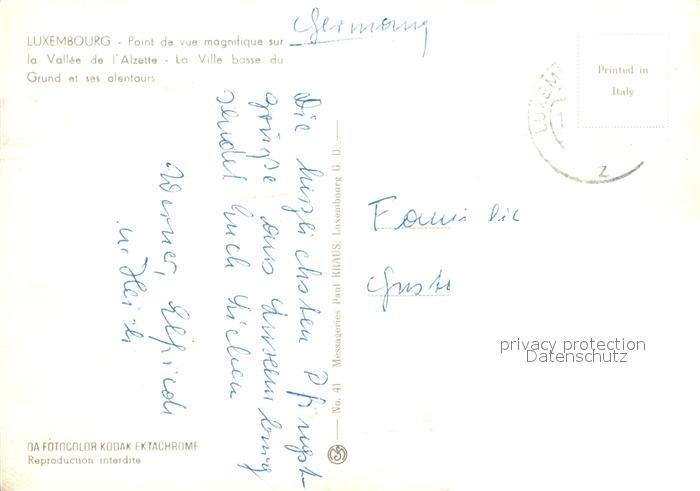 LUXEMBOURG - Point de vue magnifique sur
la Vallée de l'Alzette - La Ville basse du
Grund et ses alentours
Germany
Printed in
Italy
LUXEM
2
Die herzlichsten Pfingst-
grüße aus Luxemburg
sendet Euch Lieben
Werner, Elfriede
u. Heidi
No. 41 Messageries Paul KRAUS, Luxembourg G. D.
Familie
Gust
privacy protection
Datenschutz
DA FOTOCOLOR KODAK EKTACHROME
Reproduction interdite